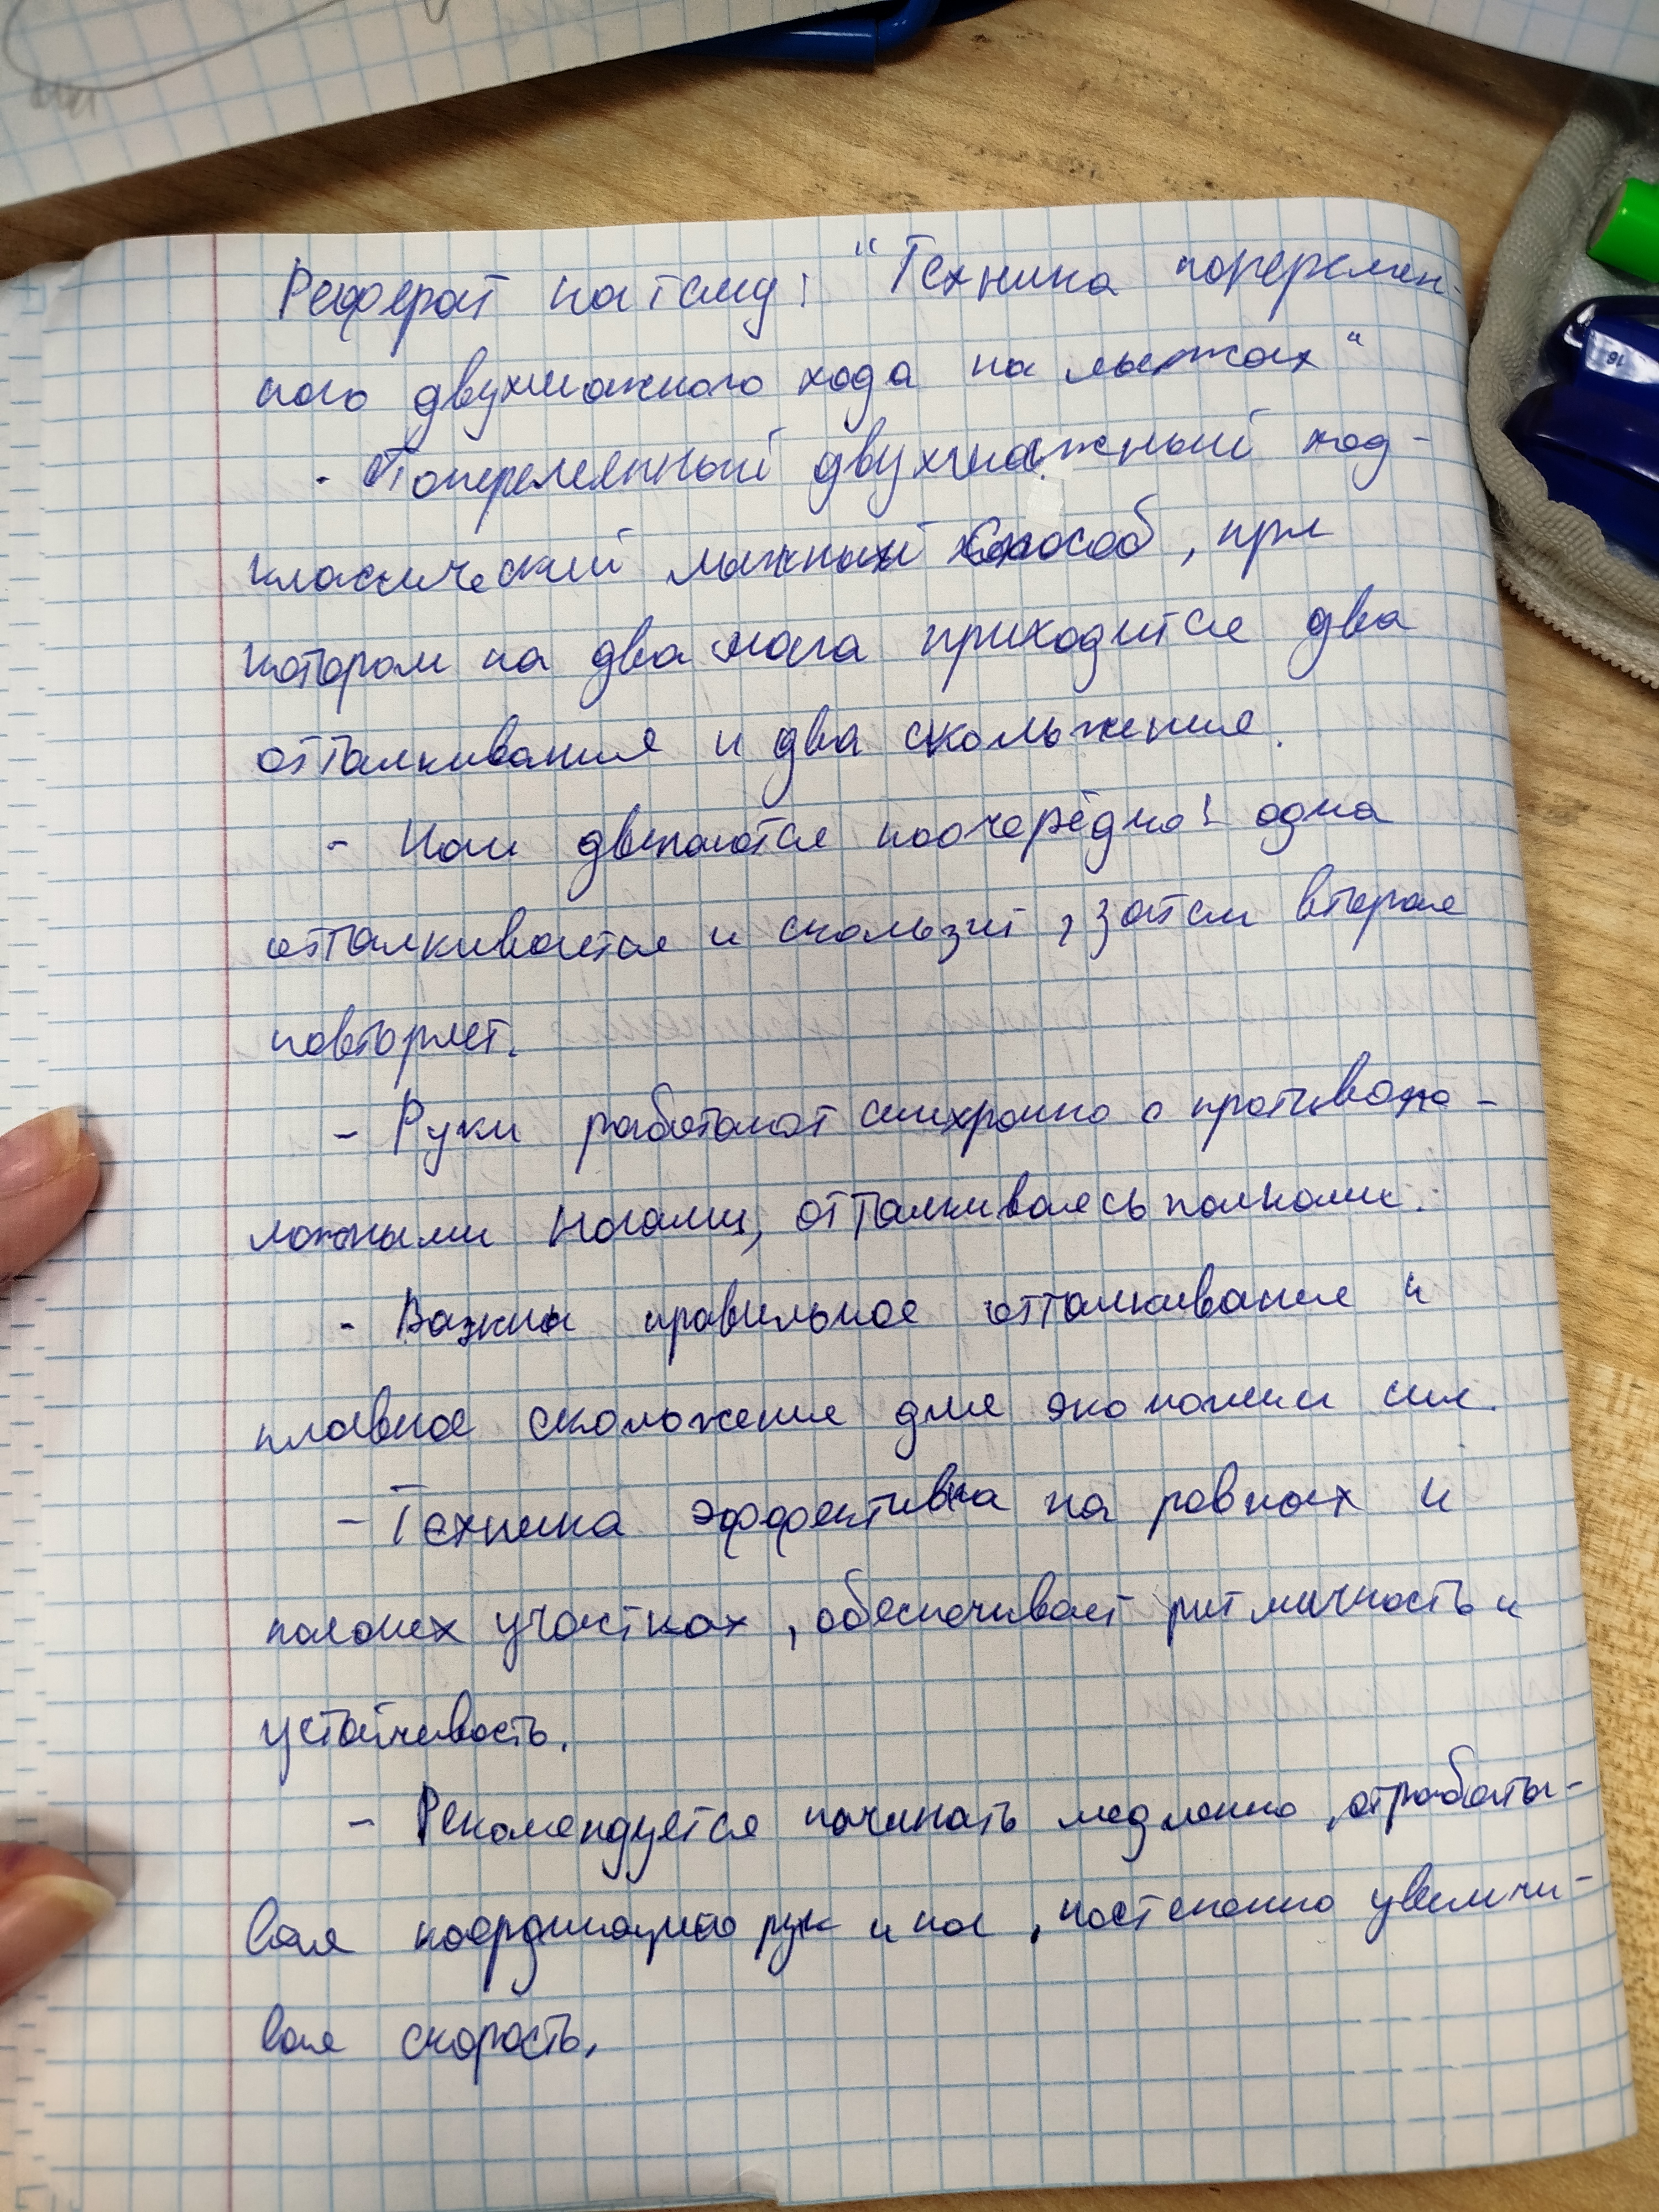 Реферат на тему: "Техника поперемен-
ного двухшажного хода на лыжах"
- Попеременный двухшажный ход -
классический лыжный способ, при
котором на два шага приходится два
отталкивания и два скольжения.
- Ноги двигаются поочерёдно: одна
отталкивается и скользит, затем вторая
повторяет.
- Руки работают синхронно с противопо-
ложными ногами, отталкиваясь палками.
- Важны правильное отталкивание и
плавное скольжение для экономии сил.
- Техника эффективна на ровных и
пологих участках, обеспечивает ритмичность и
устойчивость.
- Рекомендуется начинать медленно, отрабаты-
вая координацию рук и ног, постепенно увеличи-
вая скорость.